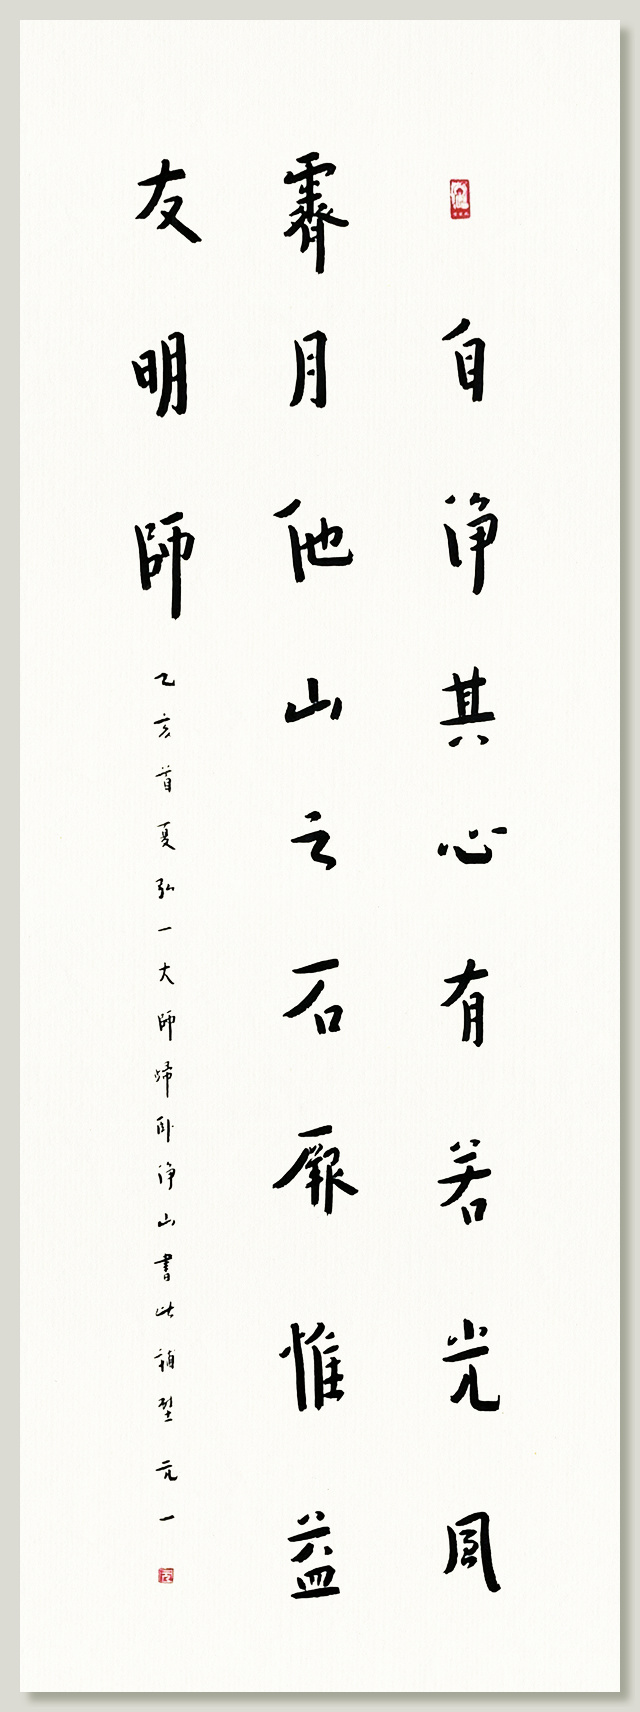 自淨其心有若光風
霽月他山之石厥惟益
友明師
乙亥首夏弘一大師歸卧淨山書此補壁元一